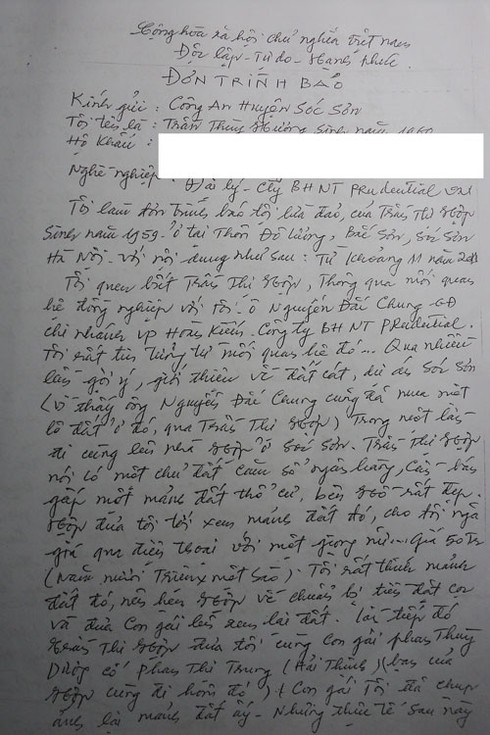 Cộng hòa xã hội chủ nghĩa việt nam
Độc lập - Tự do - Hạnh phúc
ĐƠN TRÌNH BÁO
Kính gửi : Công An Huyện Sóc Sơn
Tôi tên là : Trần Thúy Hường Sinh năm
Hộ Khẩu :
Nghề nghiệp Đại lý - Cty BHNT Prudential
Tôi làm đơn trình báo tội lừa đảo, của Trần Thị Hợp
Sinh năm 1959 - ở tại Thôn Đô Lương, Bắc Sơn, Sóc Sơn
Hà Nội - với nội dung như sau : Từ khoảng 11 năm
Tôi quen biết Trần Thị Hợp, Thông qua mối quan
hệ đồng nghiệp với tôi - ô Nguyễn Đắc Chung GĐ
chi nhánh VP Hoàn Kiếm - Công ty BHNT PRudential.
Tôi rất tin tưởng từ mối quan hệ đó... Qua nhiều
lần gợi ý, giới thiệu về đất cát, dự án Sóc Sơn
(vì thấy ông Nguyễn Đắc Chung cũng đã mua một
lô đất ở đó, qua Trần Thị Hợp) Trong một lần
đi cùng lên nhà Hợp ở Sóc Sơn. Trần Thị Hợp
nói có một chủ đất cầm sổ ngân hàng, cần bán
gấp một mảnh đất thổ cư, bên hồ rất đẹp.
Hợp đưa tôi tới xem mảnh đất đó, cho tôi ngã
giá qua điện thoại với một giọng nữ... Giá 50Tr
(Năm mươi Triệu x một sào). Tôi rất thích mảnh
đất đó, nên hẹn Hợp về chuẩn bị tiền đặt cọc
và đưa con gái lên xem lại đất. Lần tiếp đó
Trần Thị Hợp đưa tôi cùng con gái phan Thùy
có Phan Thị Trung (Hải Thịnh) (bạn của
Hợp cùng đi hôm đó) + Con gái Tôi đã chụp
ảnh lại mảnh đất ấy - Nhưng thực tế sau này